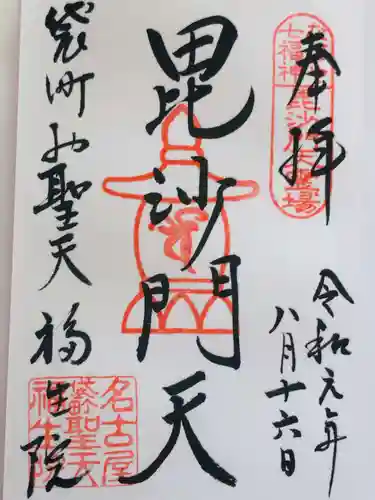 奉拝
七福神
毘沙門天霊場
令和元年
八月十六日
毘沙門天
袋町お聖天
福生院
名古屋
袋町聖天
福生院